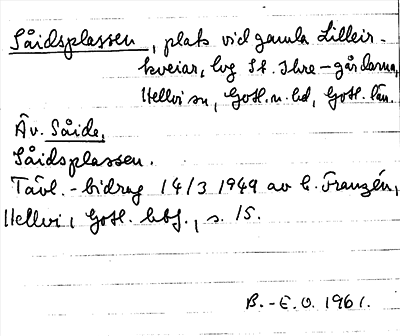 Såidsplassen, plats vid gamla Lilleir-
kveiar, lvg St. Ihre-gårdarna,
Hellvi sn, Gotl. n. hd, Gotl. län.
Äv. Såide,
Såidsplassen.
Tävl.-bidrag 14/3 1949 av E. Franzén,
Hellvi, Gotl. hbf., s. 15.
B.-E. O. 1961.